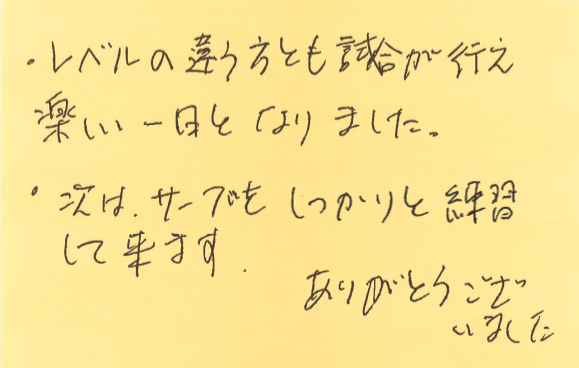 ・レベルの違う方とも試合が行え
楽しい一日となりました。
・次は、サーブをしっかりと練習
して来ます.
ありがとうござ
いました